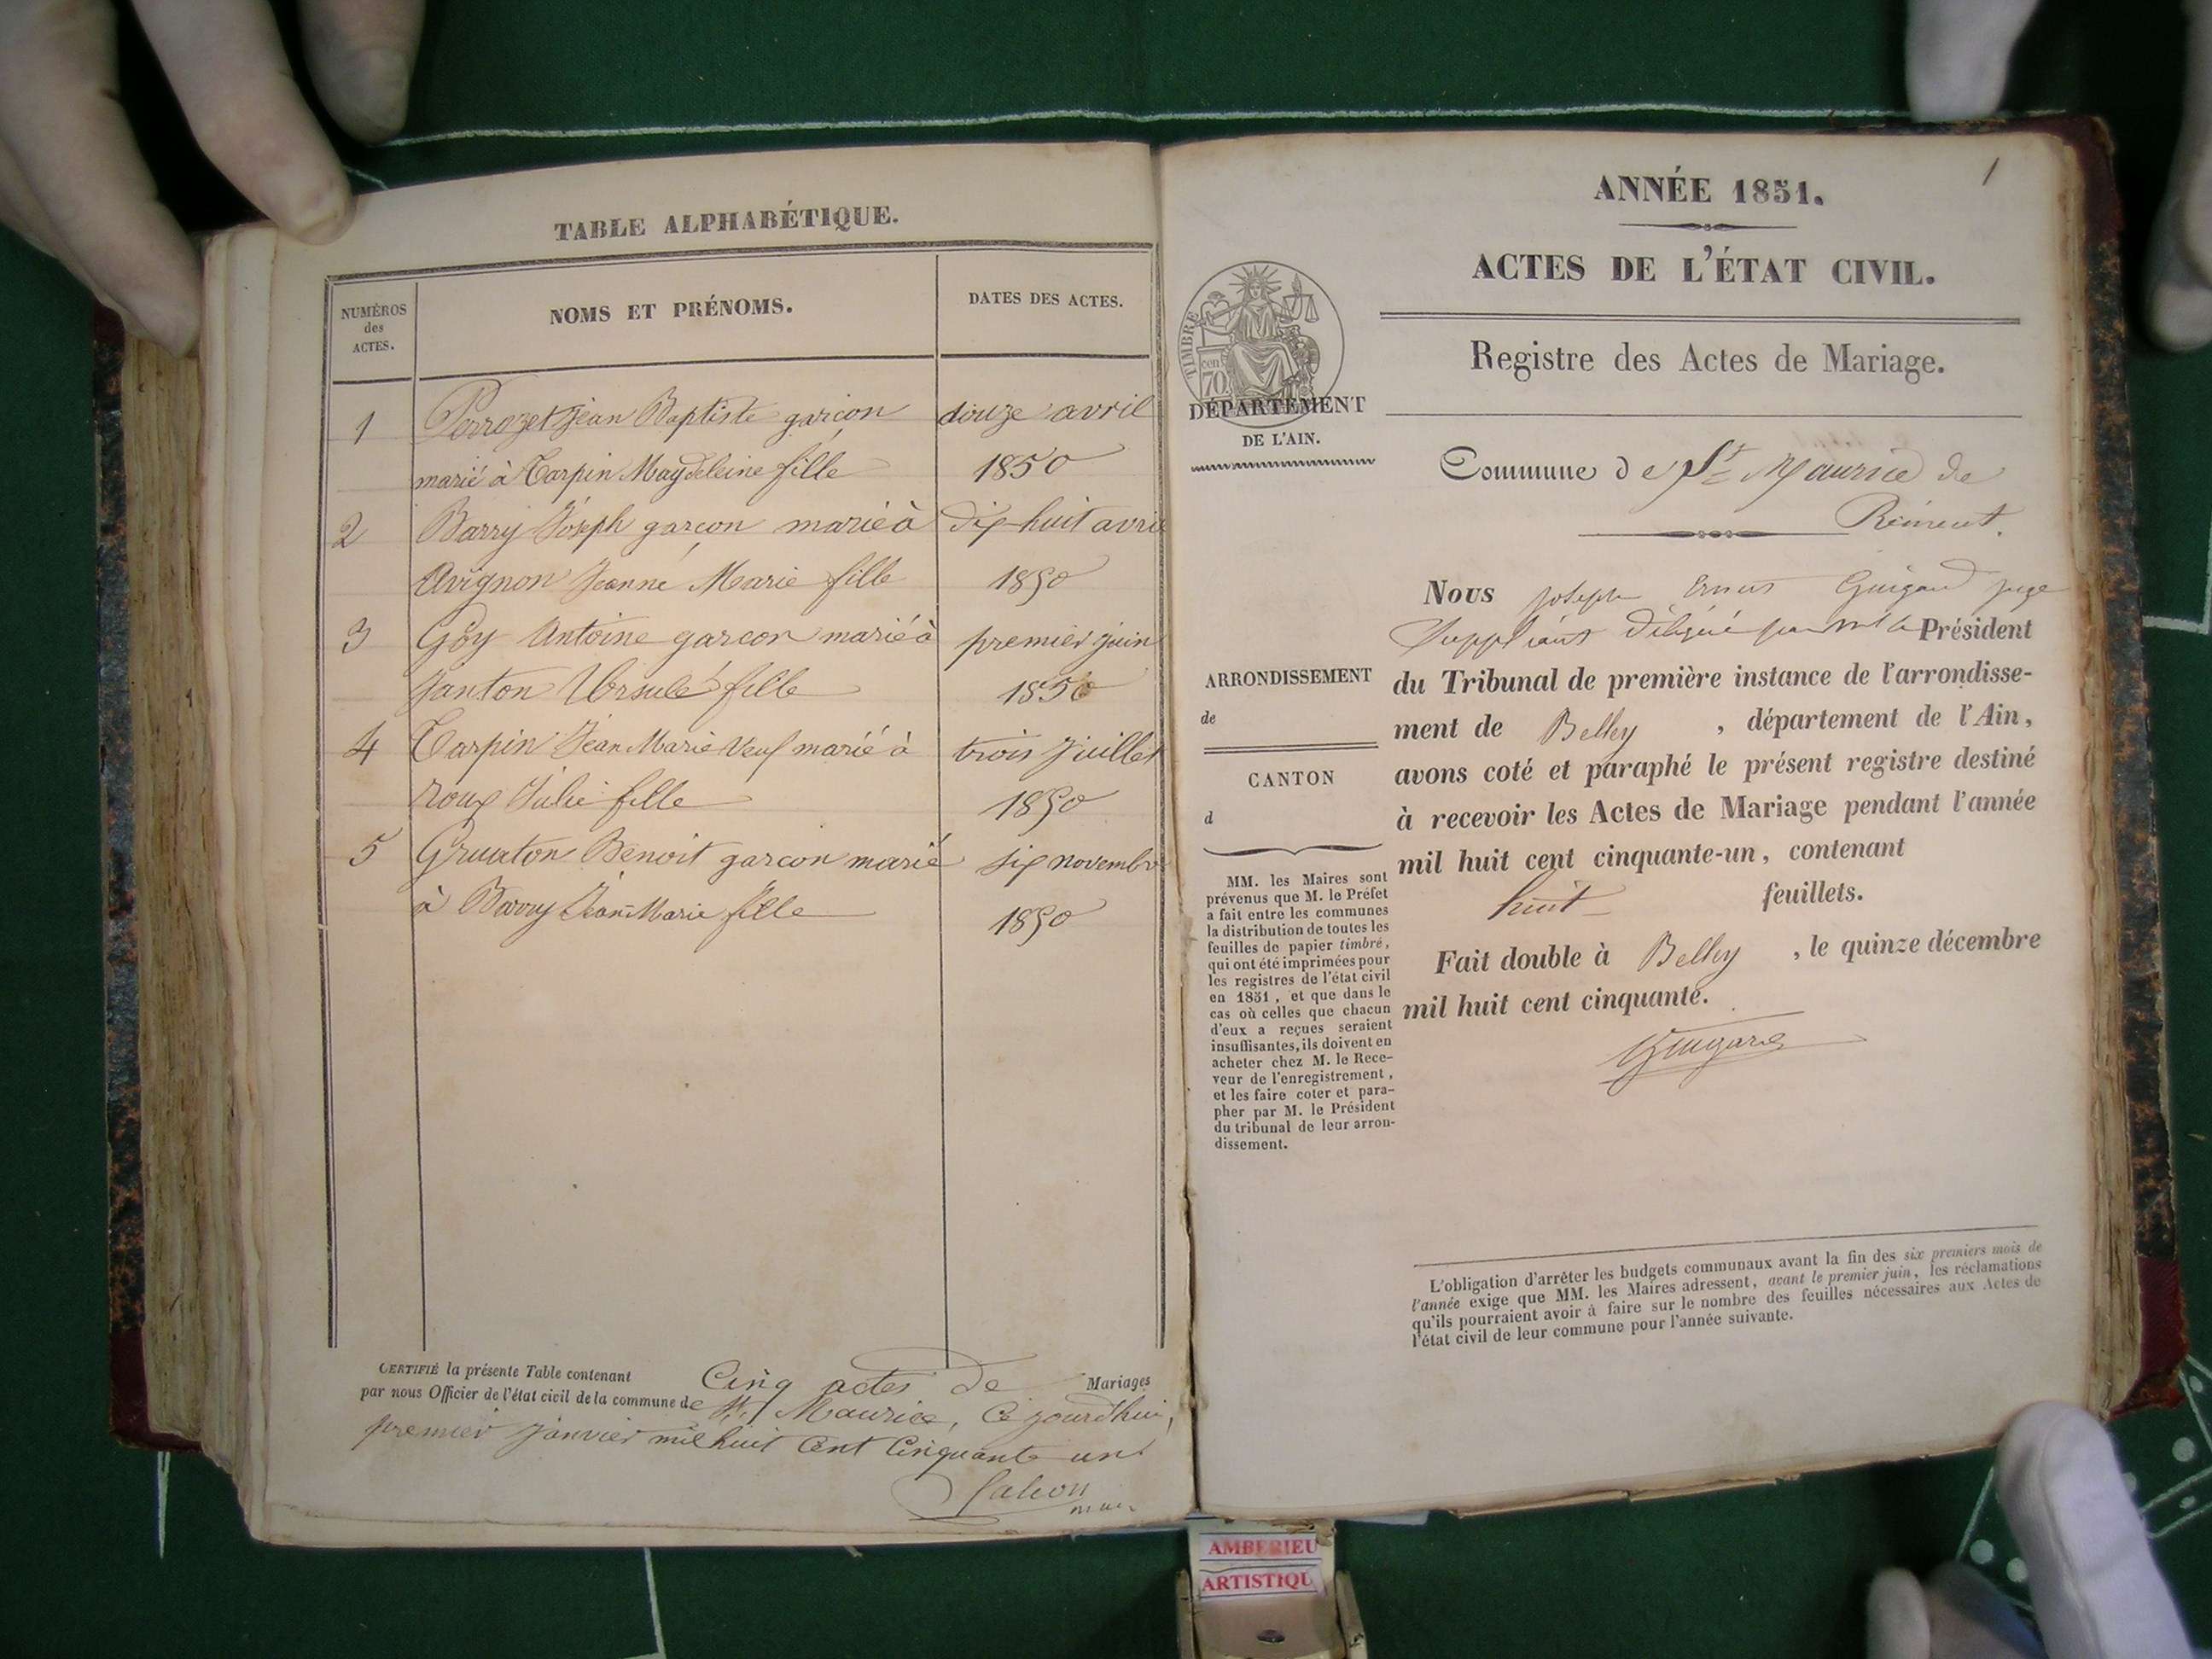 TABLE ALPHABÉTIQUE.
NUMÉROS
des
ACTES.
NOMS ET PRÉNOMS.
DATES DES ACTES.
1 Perrozet Jean Baptiste garçon douze avril
marié à Tarpin Maydeleine fille 1850
2 Barry Joseph garçon marié à dix-huit avril
Avignon Jeanne Marie fille 1850
3 Goy Antoine garcon marié à premier juin
Janton Ursule fille 1850
4 Tarpin Jean Marie Veuf marié à trois juillet
Roux Julie fille 1850
5 Gruaton Benoit garcon marié six novembre
à Barry Jean-Marie fille 1850
CERTIFIÉ la présente Table contenant Cinq actes de Mariages
par nous Officier de l'état civil de la commune de St Maurice, Ce jourd'hui,
premier janvier mil huit Cent Cinquante un
Falcon
maire
1
ANNÉE 1851.
ACTES DE L'ÉTAT CIVIL.
TIMBRE
cen
70
Registre des Actes de Mariage.
DÉPARTEMENT
DE L'AIN.
Commune de St Maurice de
Rémens.
Nous Joseph Ernest Guigard juge
Suppléant délégué par Mr le Président
du Tribunal de première instance de l'arrondisse-
ment de Belley, département de l'Ain,
avons coté et paraphé le présent registre destiné
à recevoir les Actes de Mariage pendant l'année
mil huit cent cinquante-un, contenant
huit feuillets.
Fait double à Belley, le quinze décembre
mil huit cent cinquante.
Guigard
ARRONDISSEMENT
de
CANTON
d
MM. les Maires sont
prévenus que M. le Préfet
a fait entre les communes
la distribution de toutes les
feuilles de papier timbré,
qui ont été imprimées pour
les registres de l'état civil
en 1851, et que dans le
cas où celles que chacun
d'eux a reçues seraient
insuffisantes, ils doivent en
acheter chez M. le Rece-
veur de l'enregistrement,
et les faire coter et para-
pher par M. le Président
du tribunal de leur arron-
dissement.
L'obligation d'arrêter les budgets communaux avant la fin des six premiers mois de
l'année exige que MM. les Maires adressent, avant le premier juin, les réclamations
qu'ils pourraient avoir à faire sur le nombre des feuilles nécessaires aux Actes de
l'état civil de leur commune pour l'année suivante.
AMBERIEU
ARTISTIQU